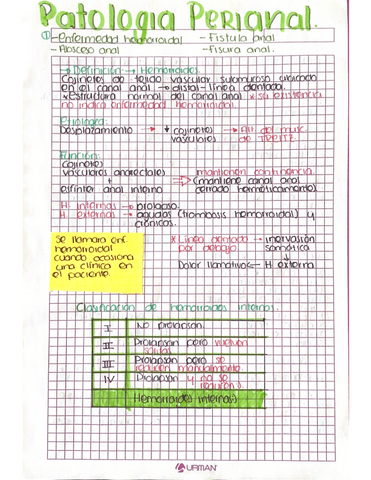 Patología Perianal.
① -Enfermedad hemorroidal -Fístula anal
-Absceso anal -Fisura anal.
→ Definición → Hemorroides
Cojinetes de tejido vascular submucoso ubicado
en el canal anal → distal-línea dentada.
*Estructura normal del canal anal *su existencia
no indica enfermedad hemorroidal.
Etiología:
Desplazamiento → ↓ cojinetes → Alt del musc
vasculares de TREITZ
Función:
Cojinetes
vasculares anorectales mantienen continencia
+ ⇒ (mantiene canal anal
esfínter anal interno cerrado herméticamente)
H. internas → prolapso.
H. externas → agudas (trombosis hemorroidal) y
crónicas.
Se llamara enf.
hemorroidal
cuando ocasiona
una clínica en
el paciente.
* Línea dentada → inervación
por debajo. somática
↓
Dolor llamativo ← H externa
Clasificación de hemorroides internas.
I No prolapsan.
II Prolapsan pero vuelven
solitas
III Prolapsan pero se
reducen manualmente.
IV Prolapsan y no se
reducen
Hemorroides internas
URMAN